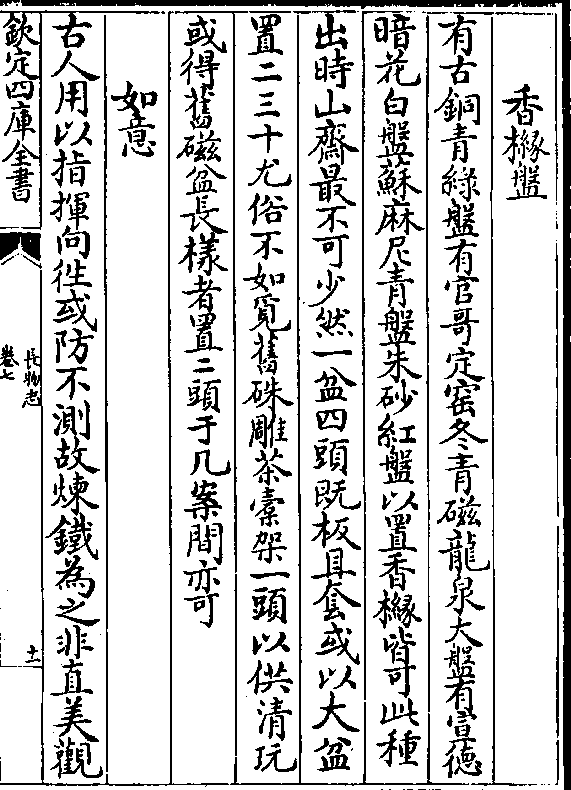 香櫞盤
有古銅青緑盤有官哥定窑冬青磁龍泉大盤有宣德
暗花白盤蘇麻尼青盤朱砂紅盤以置香櫞皆可此種
出時山齋最不可少然一盆四頭既板且套或以大盆
置二三十尤俗不如覔舊硃雕茶槖架一頭以供清玩
或得舊磁盆長樣者置二頭于几案間亦可
如意
古人用以指揮向徃或防不測故煉鐵為之非直美觀
欽定四庫全書
長物志
卷七
十一